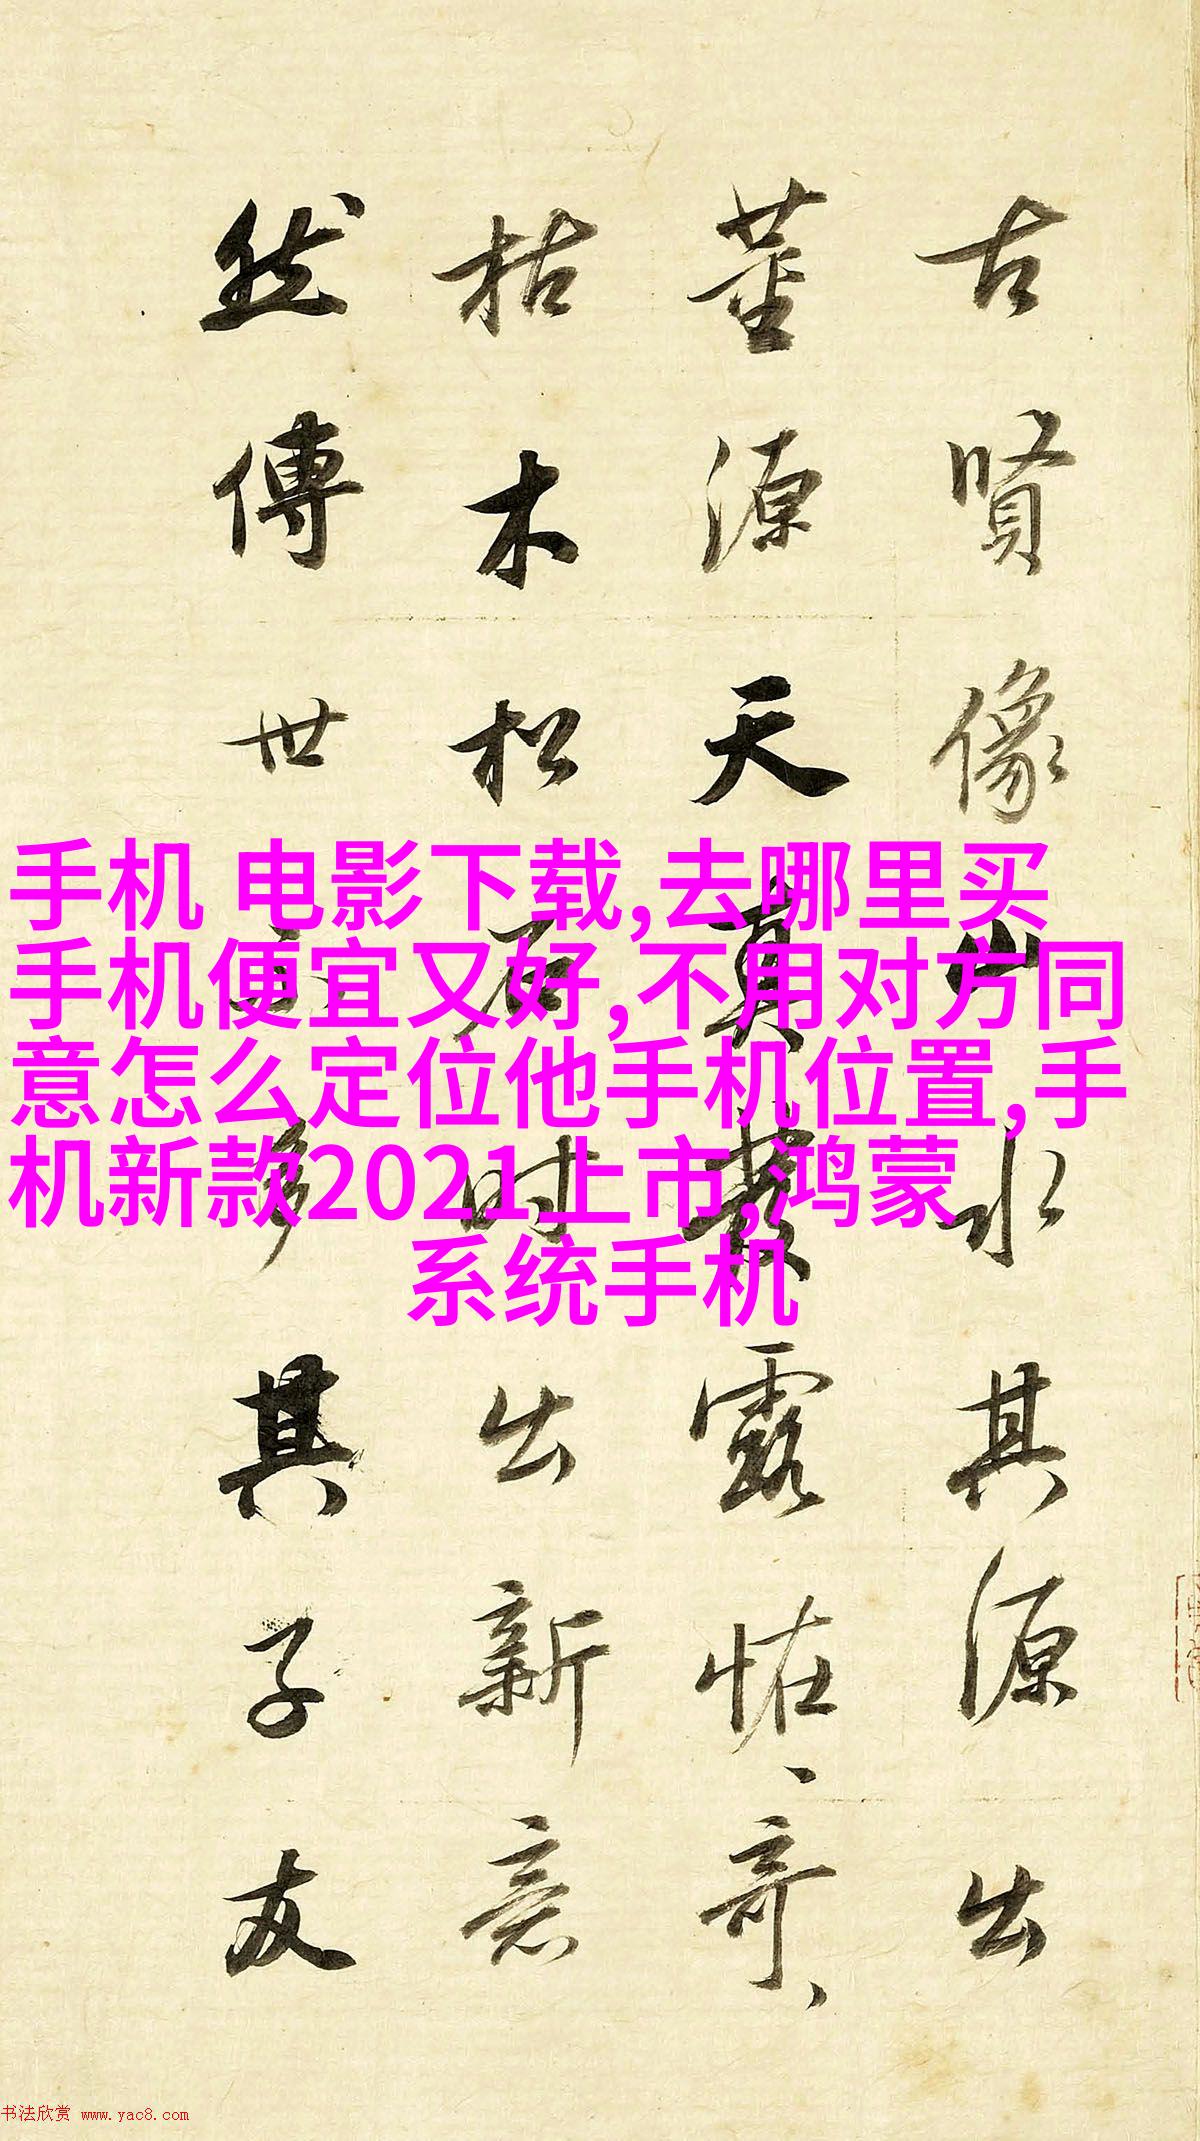 古賢像山水其源出
董源天真叢露怪奇
枯木松石時出新意
然傳世不多其子友
手机 电影下载,去哪里买
手机便宜又好,不用对方同
意怎么定位他手机位置,手
机新款2021上市,鸿蒙
系统手机
书法欣赏 www.yac8.com